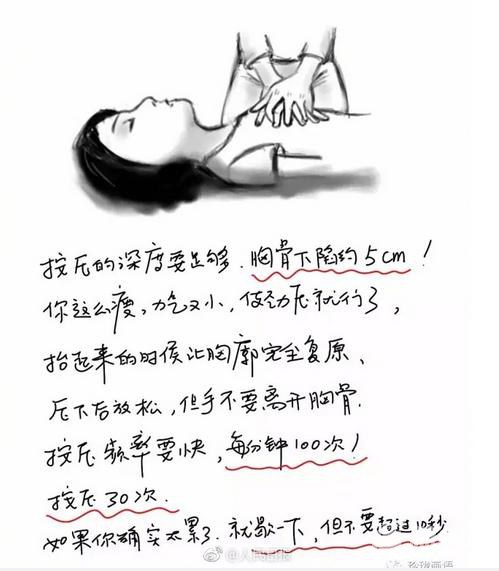 按压的深度要足够.胸骨下陷约5cm!
你这么瘦,力气又小,使劲压就行了,
抬起来的时候让胸廓完全复原、
压下后放松,但手不要离开胸骨.
按压频率要快,每分钟100次!
按压30次.
如果你确实太累了.就歇一下,但不要超过10秒
@人民日报